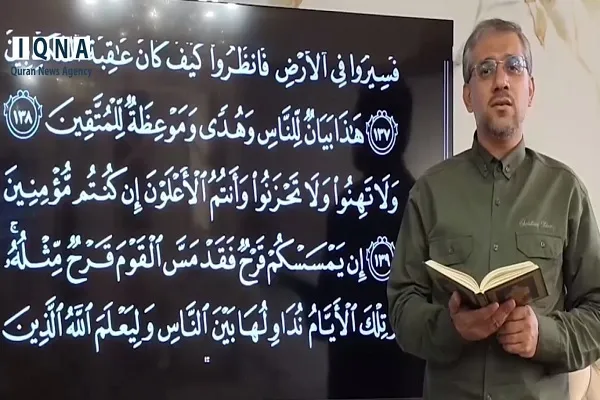 IQNA
Quran News Agency
فَسِيرُوا۟ فِى ٱلْأَرْضِ فَٱنظُرُوا۟ كَيْفَ كَانَ عَـٰقِبَةُ
١٣٧ هَـٰذَا بَيَانٌ لِّلنَّاسِ وَهُدًى وَمَوْعِظَةٌ لِّلْمُتَّقِينَ ١٣٨
وَلَا تَهِنُوا۟ وَلَا تَحْزَنُوا۟ وَأَنتُمُ ٱلْأَعْلَوْنَ إِن كُنتُم مُّؤْمِنِينَ
١٣٩ إِن يَمْسَسْكُمْ قَرْحٌ فَقَدْ مَسَّ ٱلْقَوْمَ قَرْحٌ مِّثْلُهُۥ ۚ
وَتِلْكَ ٱلْأَيَّامُ نُدَاوِلُهَا بَيْنَ ٱلنَّاسِ وَلِيَعْلَمَ ٱللَّهُ ٱلَّذِينَ